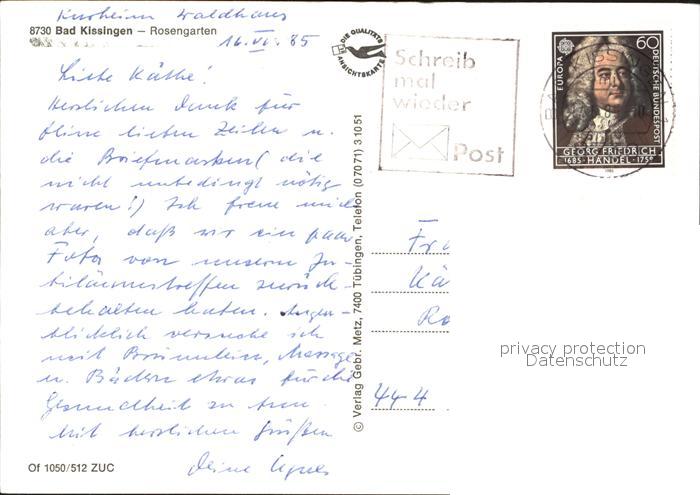 Kurheim Waldhaus
8730 Bad Kissingen – Rosengarten
16.VI.85
Liebe Käthe!
Herzlichen Dank für
Deine lieben Zeilen u.
die Briefmarken (die
nicht unbedingt nötig
waren!) Ich freue mich
aber, daß wir ein paar
Fotos von unserm Ju-
biläumstreffen zurück-
behalten haben. Augen-
blicklich versuche ich
mit Brünnlein, Massagen
u. Bädern etwas für die
Gesundheit zu tun.
Mit herzlichen Grüßen
Deine Agnes
Of 1050/512 ZUC
© Verlag Gebr. Metz, 7400 Tübingen, Telefon (07071) 31051
DIE QUALITÄTS
ANSICHTSKARTE
Schreib
mal
wieder
Post
60
EUROPA
DEUTSCHE BUNDESPOST
GEORG FRIEDRICH
1685 · HÄNDEL · 1759
1985
Fra
Kä
Ro
44-4
privacy protection
Datenschutz